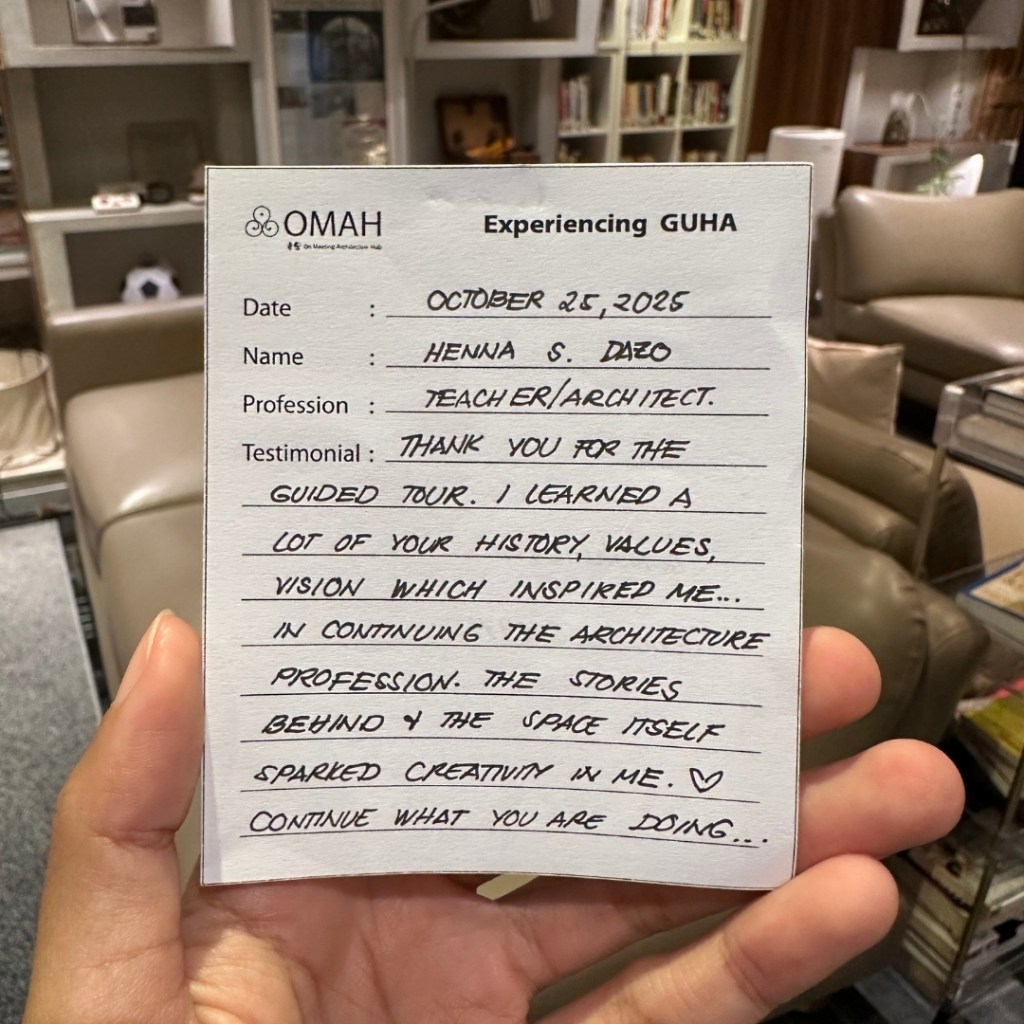 OMAH
On Meeting Architecture Hub
Experiencing GUHA
Date : OCTOBER 25, 2025
Name : HENNA S. DAZO
Profession : TEACHER/ARCHITECT.
Testimonial : THANK YOU FOR THE
GUIDED TOUR. I LEARNED A
LOT OF YOUR HISTORY, VALUES,
VISION WHICH INSPIRED ME...
IN CONTINUING THE ARCHITECTURE
PROFESSION. THE STORIES
BEHIND & THE SPACE ITSELF
SPARKED CREATIVITY IN ME. ♡
CONTINUE WHAT YOU ARE DOING...